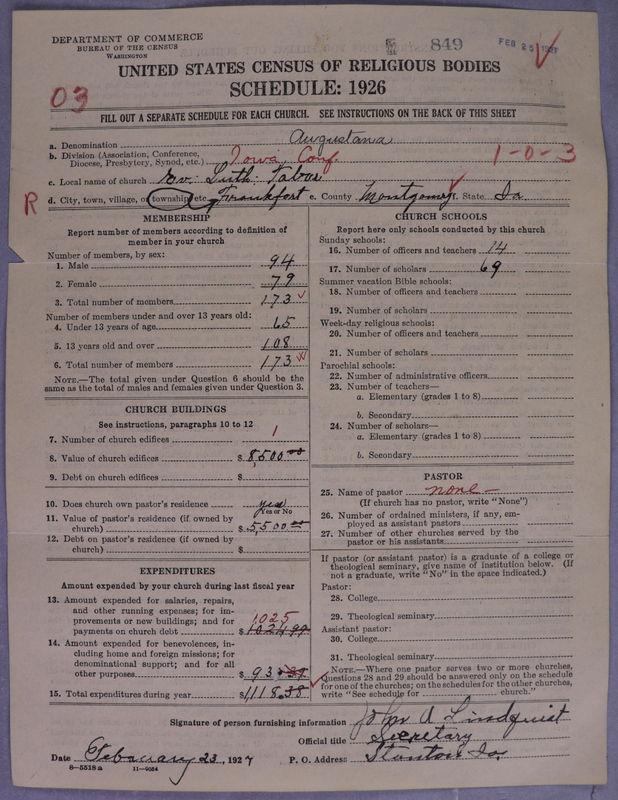 DEPARTMENT OF COMMERCE
BUREAU OF THE CENSUS
WASHINGTON
849
FEB 25 1927
UNITED STATES CENSUS OF RELIGIOUS BODIES
SCHEDULE: 1926
03
FILL OUT A SEPARATE SCHEDULE FOR EACH CHURCH. SEE INSTRUCTIONS ON THE BACK OF THIS SHEET
a. Denomination Augustana
b. Division (Association, Conference, Diocese, Presbytery, Synod, etc.) Iowa Conf. 1-0-3
c. Local name of church Ev. Luth. Tabor
R d. City, town, village, or township, etc. Frankfort e. County Montgomery f. State Ia
MEMBERSHIP
Report number of members according to definition of
member in your church
Number of members, by sex:
1. Male 94
2. Female 79
3. Total number of members 173
Number of members under and over 13 years old:
4. Under 13 years of age 65
5. 13 years old and over 108
6. Total number of members 173
NOTE.—The total given under Question 6 should be the
same as the total of males and females given under Question 3.
CHURCH BUILDINGS
See instructions, paragraphs 10 to 12
7. Number of church edifices 1
8. Value of church edifices $ 8,500 00
9. Debt on church edifices $
10. Does church own pastor's residence yes
Yes or No
11. Value of pastor's residence (if owned by
church) $ 5,500
12. Debt on pastor's residence (if owned by
church) $
EXPENDITURES
Amount expended by your church during last fiscal year
13. Amount expended for salaries, repairs,
and other running expenses; for im-
provements or new buildings; and for 1025
payments on church debt $ 1024.99
14. Amount expended for benevolences, in-
cluding home and foreign missions; for
denominational support; and for all
other purposes $ 93.39
15. Total expenditures during year $ 1118.38
CHURCH SCHOOLS
Report here only schools conducted by this church
Sunday schools:
16. Number of officers and teachers 14
17. Number of scholars 69
Summer vacation Bible schools:
18. Number of officers and teachers
19. Number of scholars
Week-day religious schools:
20. Number of officers and teachers
21. Number of scholars
Parochial schools:
22. Number of administrative officers
23. Number of teachers—
a. Elementary (grades 1 to 8)
b. Secondary
24. Number of scholars—
a. Elementary (grades 1 to 8)
b. Secondary
PASTOR
25. Name of pastor none
(If church has no pastor, write "None")
26. Number of ordained ministers, if any, em-
ployed as assistant pastors
27. Number of other churches served by the
pastor or his assistants
If pastor (or assistant pastor) is a graduate of a college or
theological seminary, give name of institution below. (If
not a graduate, write "No" in the space indicated.)
Pastor:
28. College
29. Theological seminary
Assistant pastor:
30. College
31. Theological seminary
NOTE.—Where one pastor serves two or more churches,
Questions 28 and 29 should be answered only on the schedule
for one of the churches; on the schedules for the other churches,
write "See schedule for church."
Signature of person furnishing information John A Lindquist
Official title Secretary
Date February 23, 1927 P. O. Address Stanton Ia.
8—5518 a 11—9054